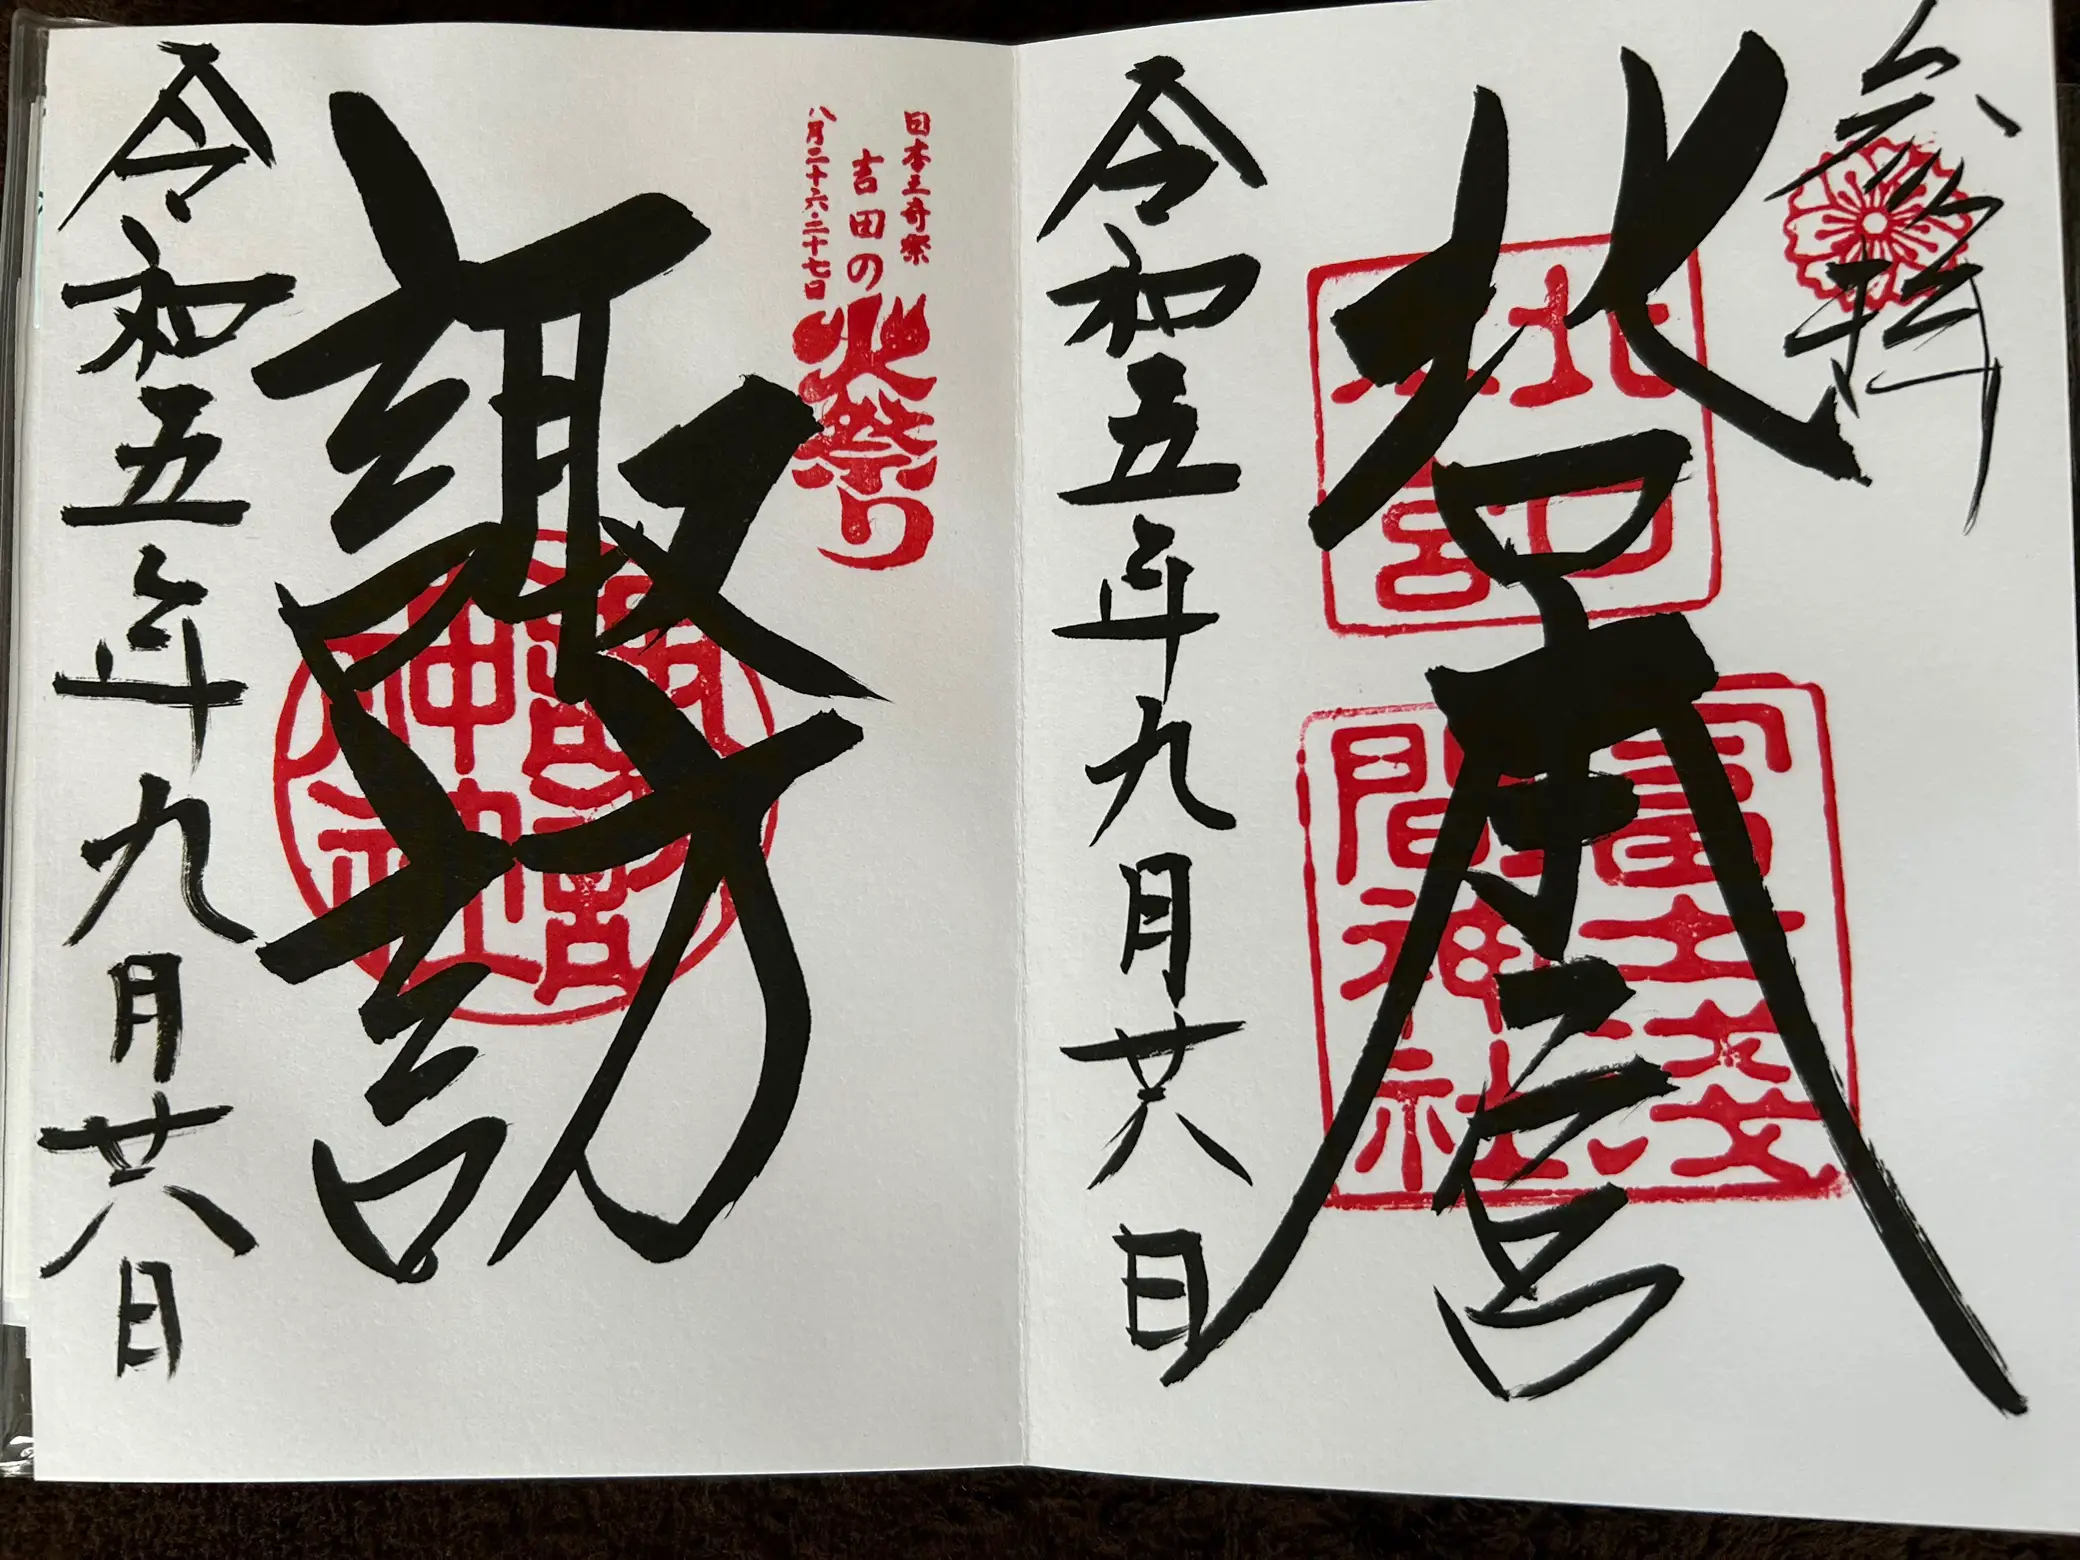 参拝
北口本宮
北口
本宮
冨士淺
間神社
令和五年九月廿八日
日本三奇祭
吉田の火祭り
八月二十六・二十七日
諏訪
令和五年九月廿八日